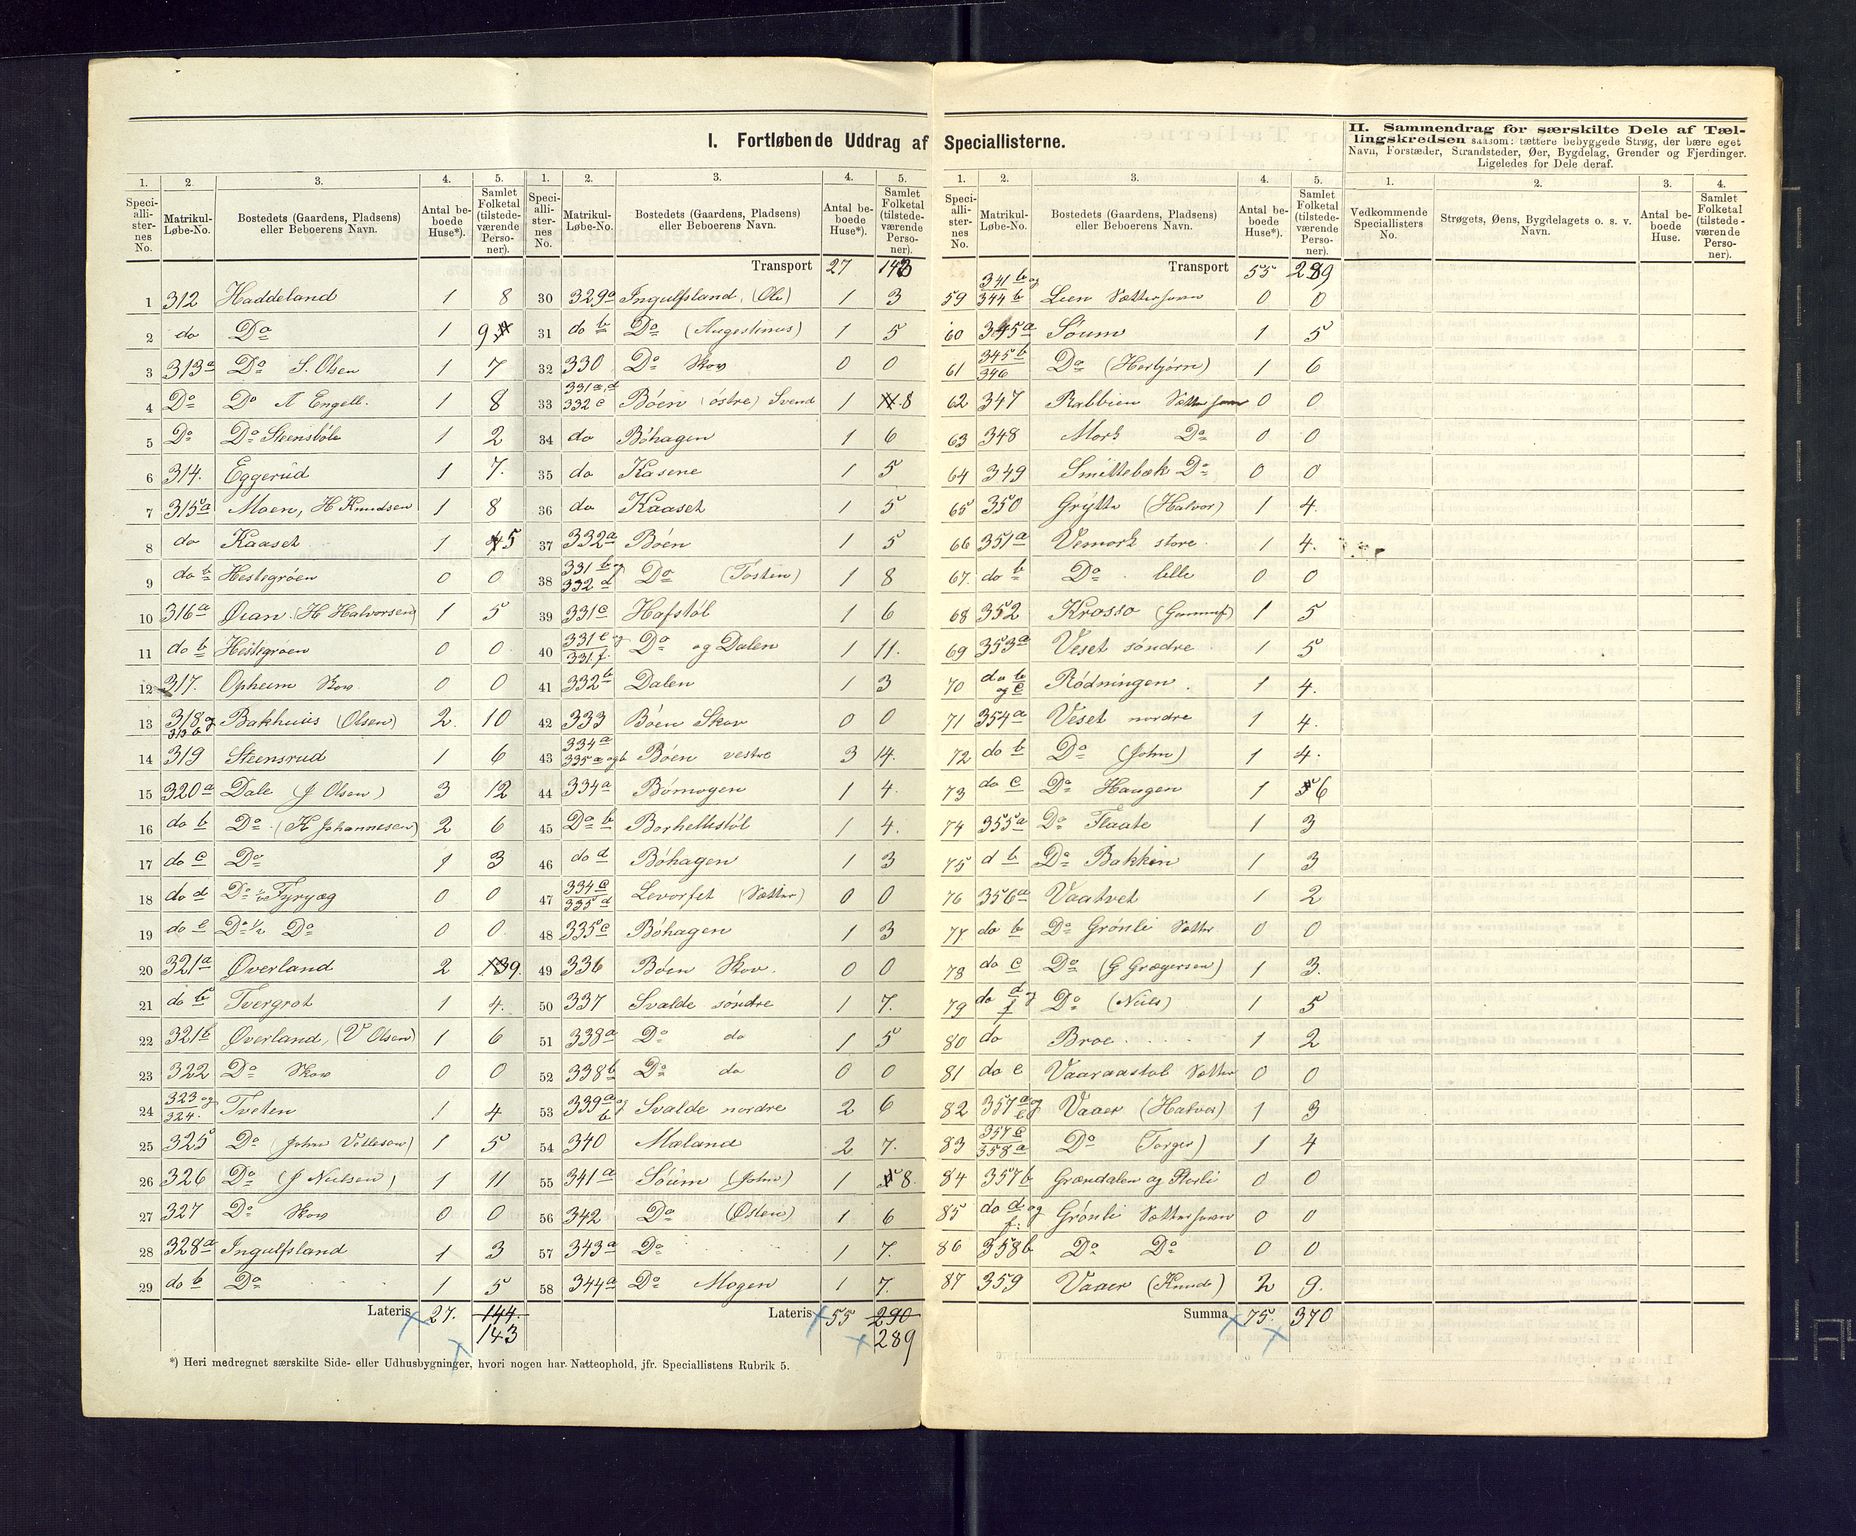 I. Fortløbende Uddrag af Speciallisterne.
1. 2. 3. 4. 5.
Speciallisternes No. Matrikul-Løbe-No. Bostedets (Gaardens, Pladsens) eller Beboerens Navn. Antal beboede Huse*). Samlet Folketal (tilstedeværende Personer).
1 312 Haddeland 1 8
2 do Do 1 9
3 313a Do S. Olsen 1 7
4 Do Do A Engell. 1 8
5 Do Do Steenstøle 1 2
6 314. Eggerud 1 7.
7 315a Moen, H Knudsen 1 8
8 do Kaaset 1 5
9 do b Hestegrøen 0 0
10 316a Øian (H Halvorsen) 1 5
11 do b Hestegrøen 0 0
12 317. Opheim Skov 0 0
13 318 og 313b Bakhuus (Olsen) 2. 10
14 319 Steensrud 1 6
15 320a Dale (J Olsen) 3 12
16 do b Do (K Johannesen) 2 6
17 do c Do 1 3
18 do d Do ½ Fyryæg 0 0
19 do e Do ½ Do 0 0
20 321a Øverland 2 9.
21 do b Tvergrot 1 4.
22 321b Øverland, (V Olsen) 1 6
23 322 Do Skov 0 0
24 323 og 324. Tveten 1 4
25 325 Do (John Vetlesen) 1 5
26 326 Do (J Nielsen) 1 11
27 327 Do Skov 0 0
28 328a Ingulfsland 1 3
29 do b Do 1 5
Lateris 27. 144.
143
1. 2. 3. 4. 5.
Speciallisternes No. Matrikul-Løbe-No. Bostedets (Gaardens, Pladsens) eller Beboerens Navn. Antal beboede Huse*). Samlet Folketal (tilstedeværende Personer).
Transport 27 143
30 329a Ingulfsland, (Ole) 1 3
31 do b Do (Augestinus) 1 5
32 330 Do Skov 0 0
33 331a,d 332c Bøen (østre) Svend 1 8
34 do Bøhagen 1 6
35 do Kasene 1 5
36 do Kaaset 1 5
37 332a Bøen 1 5
38 331b og 332d Do (Tosten) 1 8
39 331c Hafstøl 1 6
40 331e og 331f. Do og Dalen 1 11.
41 332b Dalen 1 3
42 333 Bøen Skov 0 0
43 334a 335a og b Bøen vestre 3 14.
44 334a Børnogen 1 4.
45 Do b Borhellestøl 1 4.
46 do d Bøhagen 1 3
47 334c 335d Levorfet (Sætter) 0 0
48 335c Bøhagen 1 3
49 336 Bøen Skov. 0 0
50 337 Svalde søndre 1 7.
51 338a Do do 1 5
52 338b Do do 0 0
53 339a og b Svalde nordre 2 6
54 340 Mæland 2 7.
55 341a Søum (John) 1 8.
56 342 Do (Østen) 1 6
57 343a Do 1 7.
58 344a Do Mogen 1 7.
Lateris 55 290
289
*) Heri medregnet særskilte Side- eller Udhusbygninger, hvori nogen har Natteophold, jfr. Speciallistens Rubrik 5.
1. 2. 3. 4. 5.
Speciallisternes No. Matrikul-Løbe-No. Bostedets (Gaardens, Pladsens) eller Beboerens Navn. Antal beboede Huse*). Samlet Folketal (tilstedeværende Personer).
Transport 55 289
59 341b og 344b Lien Sætterhavn 0 0
60 345a Søum 1 5
61 345b 346 Do (Herbjørn) 1 6
62 347 Rabbien Sætterhavn 0 0
63 348 Mork Do 0 0
64 349 Smittebæk Do 0 0
65 350 Grytte (Halvor) 1 4.
66 351a Vemork store 1 4.
67. do b Do lille 0 0
68 352 Krosso (Gunnuf) 1 5
69 353a Veset søndre 1 5
70 do b og c Rødningen 1 4.
71 354a Veset nordre 1 4.
72 do b Do (John) 1 4.
73 do c Do Haugen 1 6
74 355a Do Flaate 1 3
75 d b Do Bakken 1 3
76 356a Vaatvet 1 2
77 do b Do Grønli Sætter 0 0
78 do c Do (G Grægersen) 1 3.
79 do d og f Do (Niels) 1 5
80 do Broe 1 2
81 do e Vaaraastøl Sætter 0 0
82 357a og e Vaaer (Halvor) 1 3
83 357c 358a Do (Torger) 1 4
84 357b Grændalen og Storli 0 0
85 do d og f. Grønli Sætterhavn 0 0
86 358b Do Do 0 0
87 359 Vaaer (Knude) 2 9.
Summa 75. 370
II. Sammendrag for særskilte Dele af Tællingskredsen saasom: tættere bebyggede Strøg, der bære eget Navn, Forstæder, Strandsteder, Øer, Bygdelag, Grender og Fjerdinger. Ligeledes for Dele deraf.
1. 2. 3. 4.
Vedkommende Speciallisters No. Strøgets, Øens, Bygdelagets o. s. v. Navn. Antal beboede Huse. Samlet Folketal (tilstedeværende Personer).